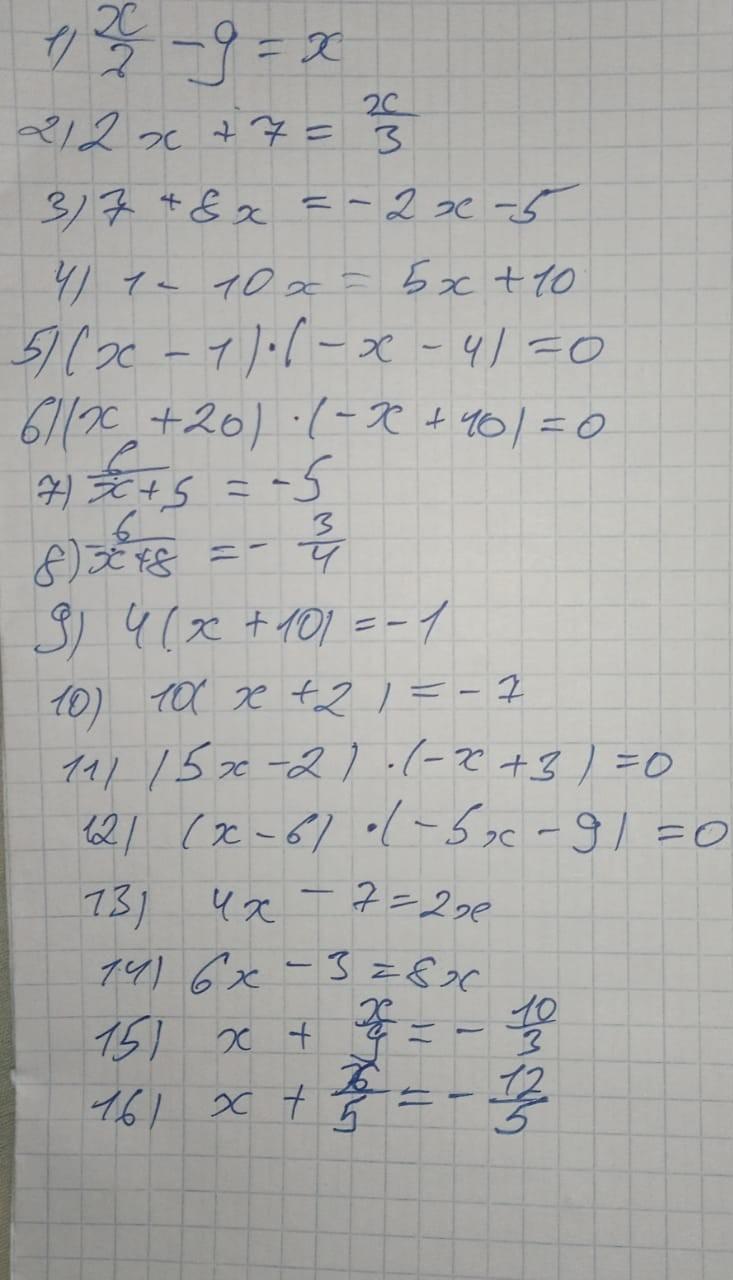 1) x/2 - 9 = x
2) 2x + 7 = x/3
3) 7 + 8x = -2x - 5
4) 1 - 10x = 5x + 10
5) (x - 1)·(-x - 4) = 0
6) (x + 20)·(-x + 10) = 0
7) 6/x+5 = -5
8) -6/x+8 = -3/4
9) 4(x + 10) = -1
10) 10(x + 2) = -7
11) (5x - 2)·(-x + 3) = 0
12) (x - 6)·(-5x - 9) = 0
13) 4x - 7 = 2x
14) 6x - 3 = 8x
15) x + x/9 = -10/3
16) x + x/5 = -12/5